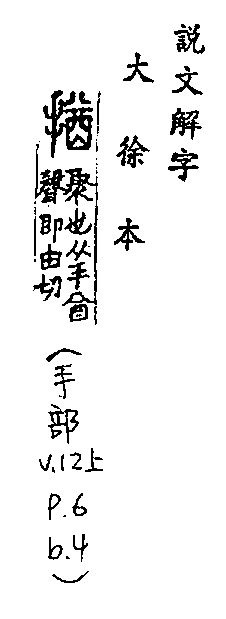 說文解字
大徐本
揂
聚也从手酋
聲即由切
(手部
v.12上
p.6
b.4)